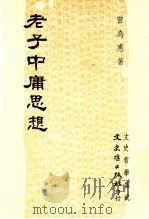 曾為惠著
文史哲學集成
文史哲出版社印行
老子中庸思想